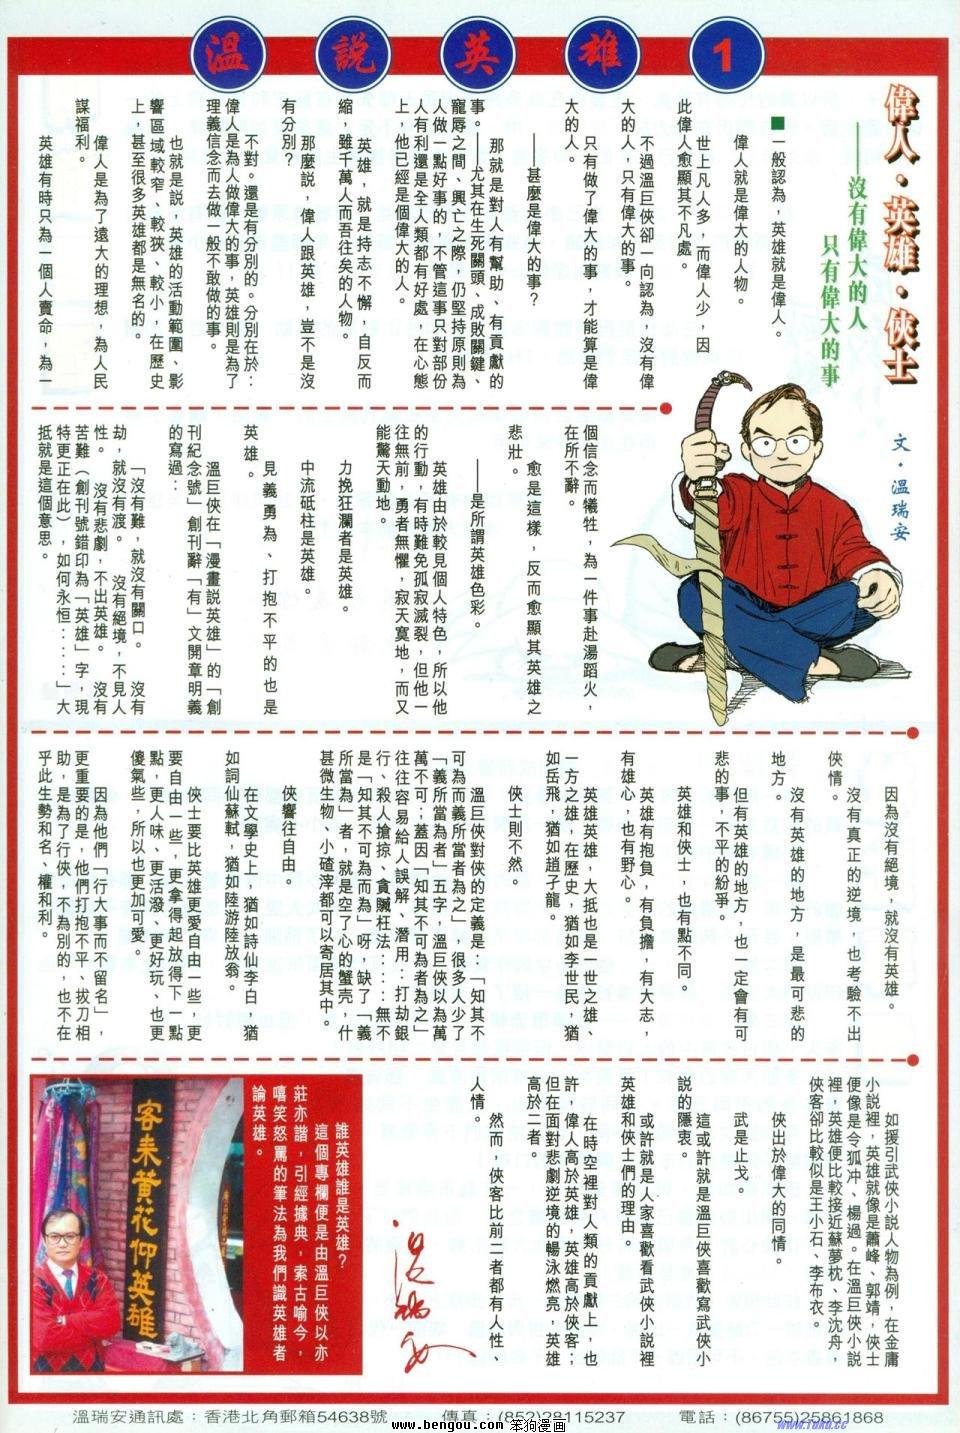 溫說英雄1
偉人·英雄·俠士
——沒有偉大的人
只有偉大的事
文·溫瑞安
■一般認為，英雄就是偉人。
偉人就是偉大的人物。
世上凡人多，而偉人少，因
此偉人愈顯其不凡處。
不過溫巨俠卻一向認為：沒有偉
大的人，只有偉大的事。
只有做了偉大的事，才能算是偉
大的人。
——甚麼是偉大的事？
那就是對人有幫助、有貢獻的
事。尤其在生死關頭、成敗關鍵、
寵辱之間、興亡之際，仍堅持原則為
人做一點好事的，不管這事只對部份
人有利還是全人類都有好處，在心態
上，他已經是個偉大的人。
英雄，就是持志不懈，自反而
縮，雖千萬人而吾往矣的人物。
那麼說，偉人跟英雄，豈不是沒
有分別？
不對。還是有分別的。分別在於：
偉人是為人做偉大的事，英雄則是為了
理義信念而去做一般不敢做的事。
也就是說，英雄的活動範圍、影
響區域較窄、較狹、較小，在歷史
上，甚至很多英雄都是無名的。
偉人是為了遠大的理想，為人民
謀福利。
英雄有時只為一個人賣命，為一
個信念而犧牲，為一件事赴湯蹈火，
在所不辭。
愈是這樣，反而愈顯其英雄之
悲壯。
——是所謂英雄色彩。
英雄由於較見個人特色，所以他
的行動，有時難免孤寂滅裂，但他一
往無前，勇者無懼，寂天寞地，而又
能驚天動地
力挽狂瀾者是英雄。
中流砥柱是英雄。
見義勇為、打抱不平的也是
英雄。
溫巨俠在「漫畫說英雄」的「創
刊紀念號」創刊辭「有」一文開章明義
的寫過：
「沒有難，就沒有關口。沒有
劫，就沒有渡。沒有絕境，不見人
性。沒有悲劇，不出英雄。沒有
苦難（創刊號錯印為「英雄」字，現
特更正在此），如何永恒……」大
抵就是這個意思。
因為沒有絕境，就沒有英雄。
沒有真正的逆境，也考驗不出
俠情。
沒有英雄的地方，是最可悲的
地方。
但有英雄的地方，也一定會有可
悲的事，不平的紛爭。
英雄和俠士，也有點不同。
英雄有抱負，有負擔，有大志，
有雄心，也有野心。
英雄英雄，大抵也是一世之雄、
一方之雄，在歷史，猶如李世民，猶
如岳飛，猶如趙孑龍。
俠士則不然。
溫巨俠對俠的定義是：「知其不
可為而義所當者為之」，很多人少了
「義所當為者」五字，溫巨俠以為萬
萬不可；蓋因「知其不可為者為之」
往往容易給人誤解、濳用：打劫銀
行、殺人搶掠、貪贓枉法……無不
是「知其不可為而為」呀，缺了「義
所當為」者，就是空了心的蟹壳，什
甚微生物、小碴滓都可以寄居其中。
俠響往自由。
在文學史上，猶如詩仙李白，猶
如詞仙蘇軾，猶如陸游陸放翁。
俠士要比英雄更愛自由一些，更
要自由一些，更拿得起放得下一點
點，更人味、更活潑、更好玩、也更
傻氣些，所以也更加可愛。
因為他們「行大事而不留名」，
更重要的是，他們打抱不平、拔刀相
助，是為了行俠，不為別的，也不在
乎此生勢和名、權和利。
如援引武俠小說人物為例，在金庸
小說裡，英雄就像是蕭峰、郭靖，俠士
便像是令狐冲、楊過。在溫巨俠小說
裡，英雄便比較接近蘇夢枕、李沈舟，
俠客卻比較似是王小石、李布衣。
俠出於偉大的同情。
武是止戈。
這或許就是溫巨俠喜歡寫武俠小
說的隱衷。
或許就是人家喜歡看武俠小說裡
英雄和俠士們的理由。
在時空裡對人類的貢獻上，也
許，偉人高於英雄，英雄高於俠客；
但在面對悲劇逆境的暢泳燃亮，英雄
高於二者。
然而，俠客比前二者都有人性、
人情。
溫瑞安
誰英雄誰是英雄？
這個專欄便是由溫巨俠以亦
莊亦諧，引經據典，索古喻今，
嘻笑怒罵的筆法為我們識英雄者
論英雄。
客来黃花仰英雄
溫瑞安通訊處：香港北角郵箱54638號 傳真：(852)28115237 電話：(86755)25861868
www.bengou.com 笨狗漫画
www.fuku.cc